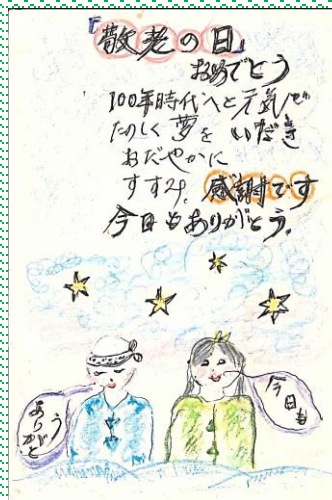 『敬老の日』
おめでとう
100年時代へと元気で
たのしく夢をいだき
おだやかに
すすみ。感謝です
今日もありがとう。
今日も
ありがとう